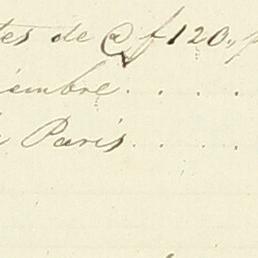 tes de @ f 120.,
iembre . . . .
Paris . . . .